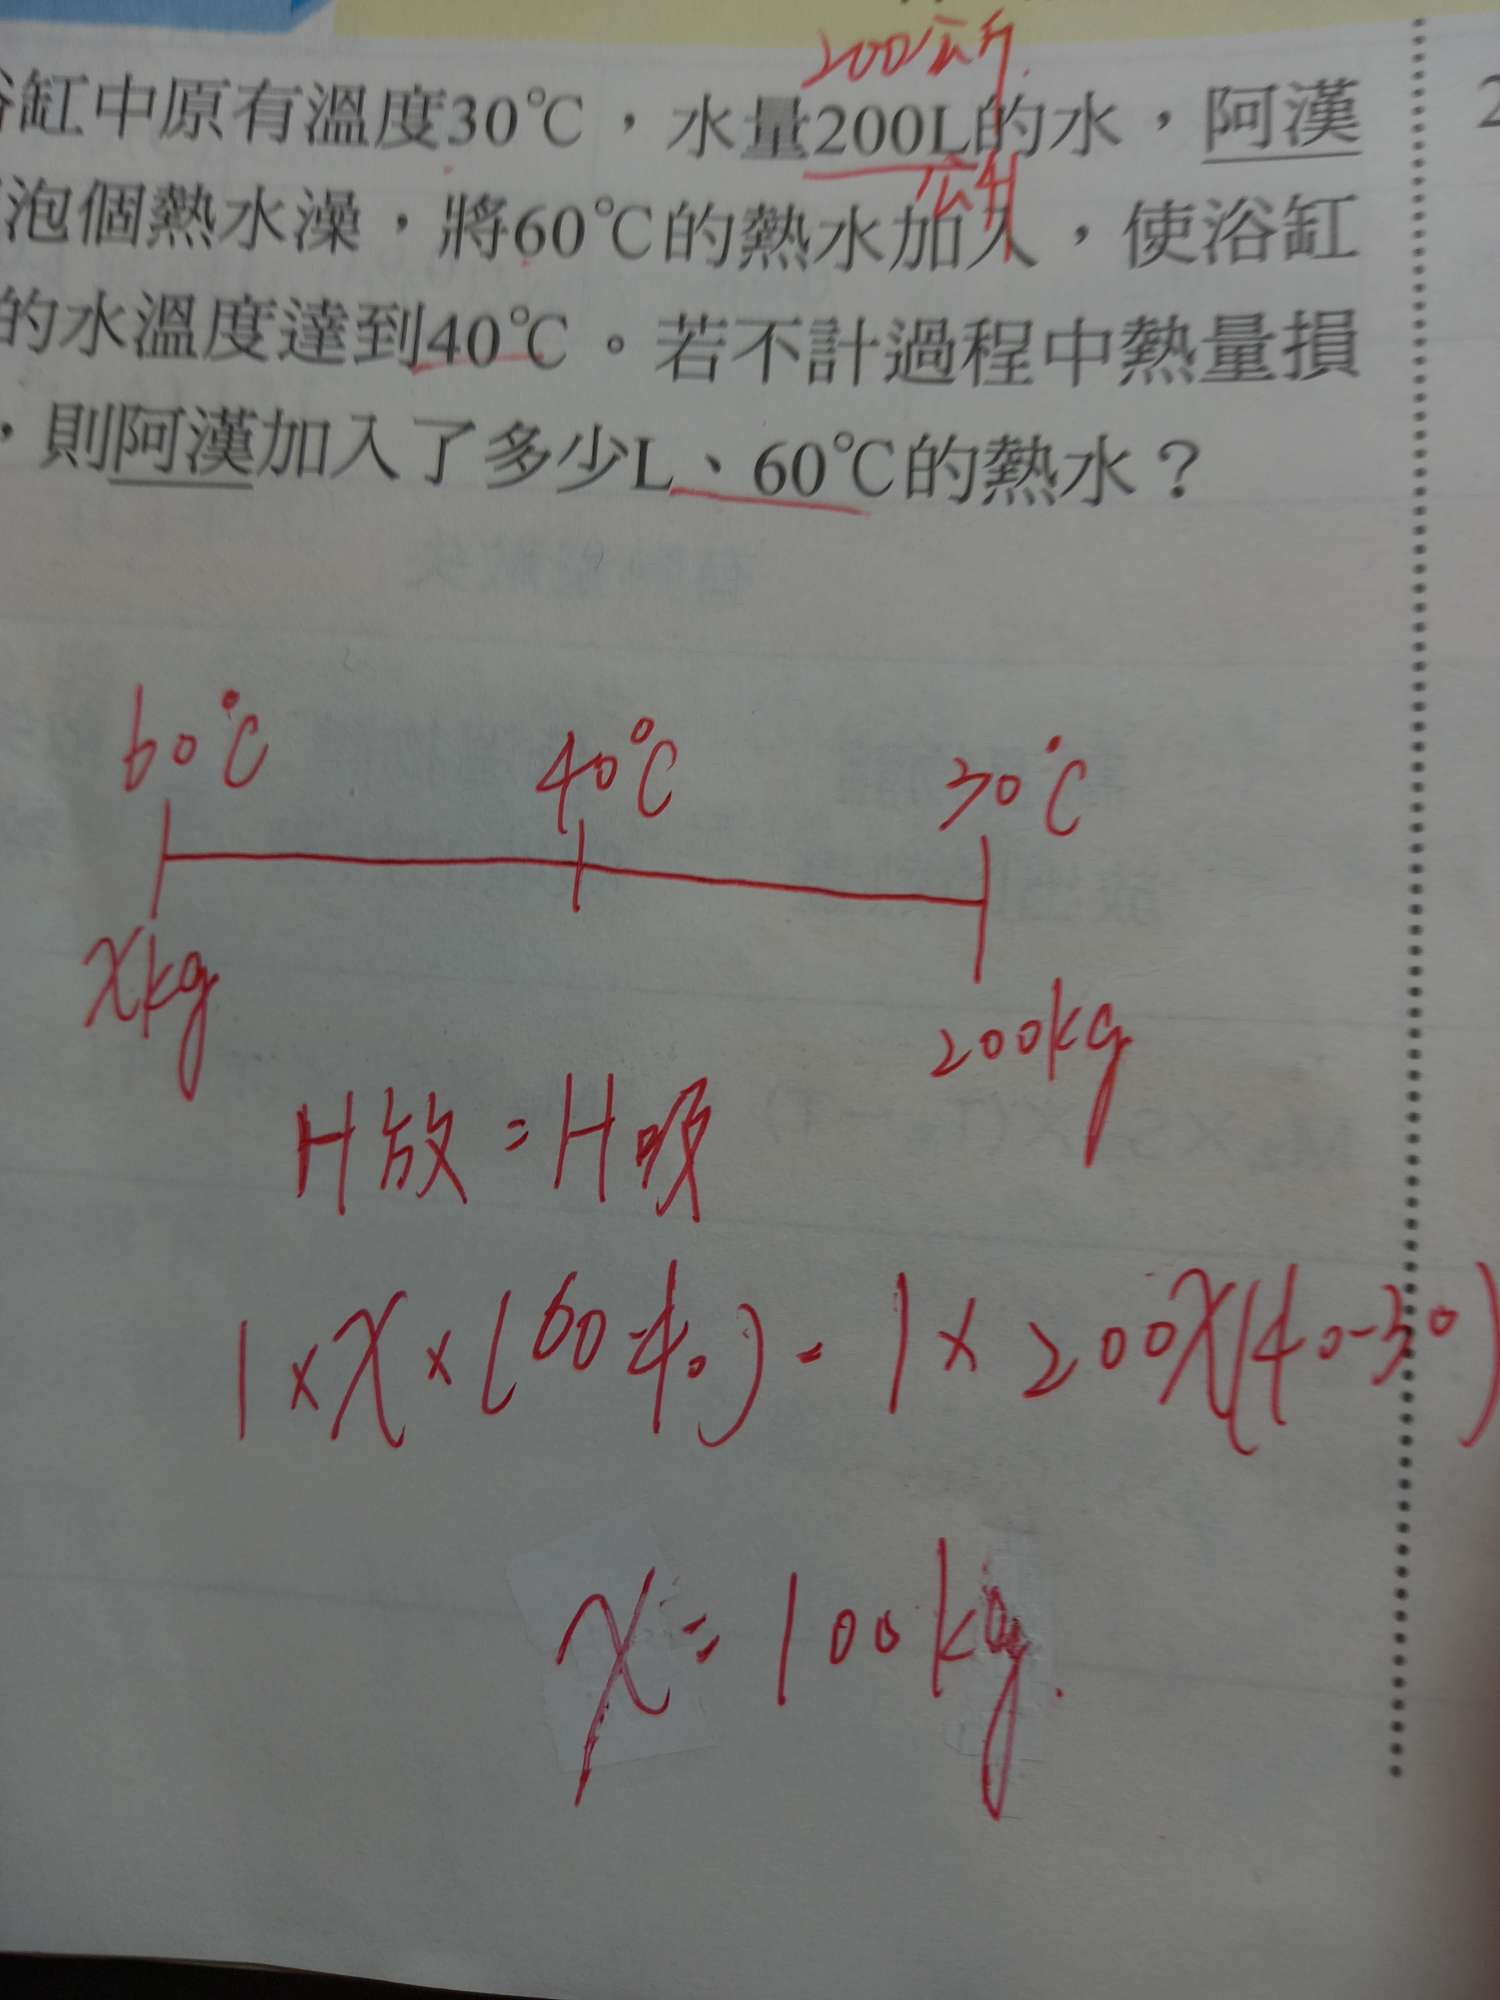 200公斤
缸中原有溫度30℃，水量200L的水，阿漢
公升
泡個熱水澡，將60℃的熱水加入，使浴缸
的水溫度達到40℃。若不計過程中熱量損
，則阿漢加入了多少L、60℃的熱水？
60℃ 40℃ 30℃
Xkg 200kg
H放=H吸
1×X×(60-40)=1×200×(40-30)
X=100kg.